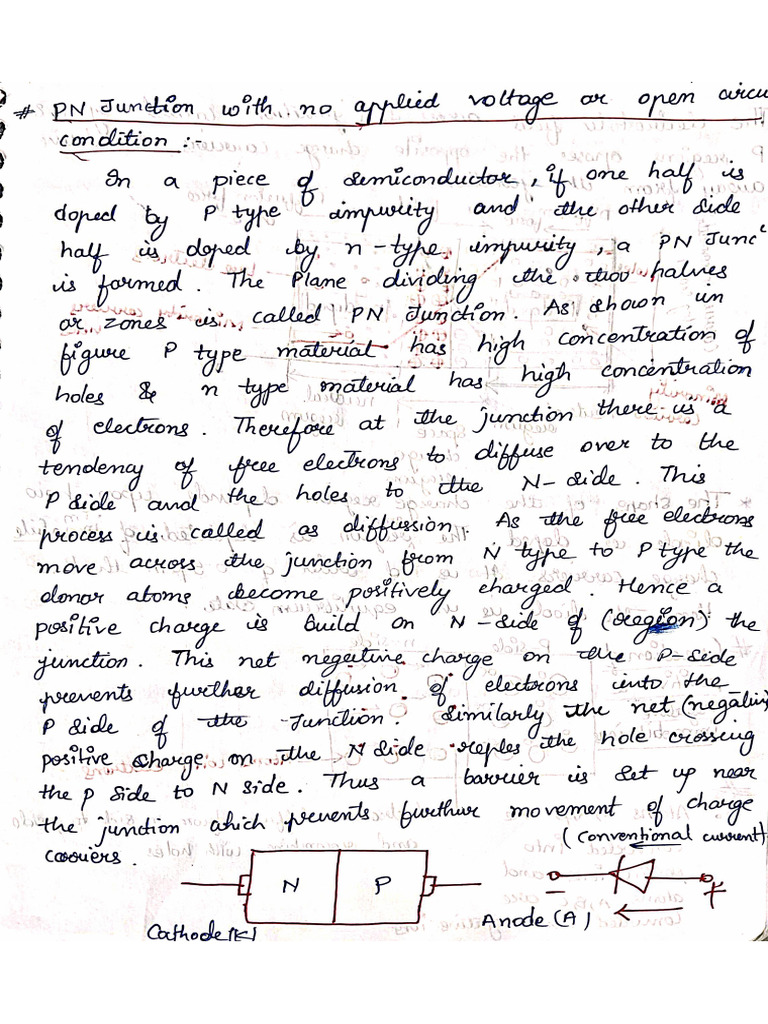 # PN Junction with no applied voltage or open circu
condition :
In a piece of semiconductor, if one half is
doped by P type impurity and the other side
half is doped by n-type impurity, a PN Junc
is formed. The Plane dividing the two halves
or zones is called PN Junction. As shown in
figure P type material has high concentration of
holes & n type material has high concentration
of electrons. Therefore at the junction there is a
tendency of free electrons to diffuse over to the
P side and the holes to the N-side. This
process is called as diffussion. As the free electrons
move across the junction from N type to P type the
donor atoms become positively charged. Hence a
positive charge is build on N-side of (region) the
junction. This net negative charge on the P-side
prevents further diffusion of electrons into the
P side of the Junction. Similarly the net (negative
positive charge on the N side reples the hole crossing
the P side to N side. Thus a barrier is set up near
the junction which prevents further movement of charge
carriers.
(conventional current)
N P
- +
Cathode (K)
Anode (A)